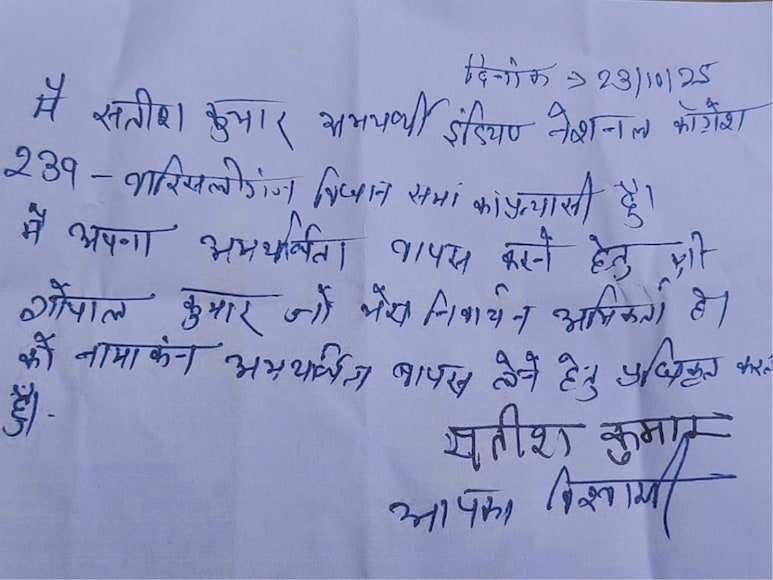 दिनांक → 23/10/25
मैं सतीश कुमार अभ्यर्थी इंडियन नेशनल कॉग्रेश
239 - वारिसलीगंज विधान सभा का प्रत्यासी हूँ।
मैं अपना अभ्यर्थिता वापस करने हेतु श्री
गोपाल कुमार जो मेरा निर्वाचन अभिकर्ता है।
को नामाकंन अभ्यर्थिता वापस लेने हेतु प्राधिकृत करता
हूँ।
सतीश कुमार
आपका विश्वासी